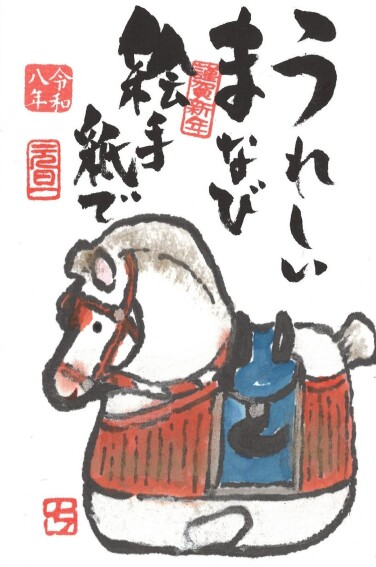 うれしい
まなび
絵手
紙で
謹賀新年
令和
八年
元旦